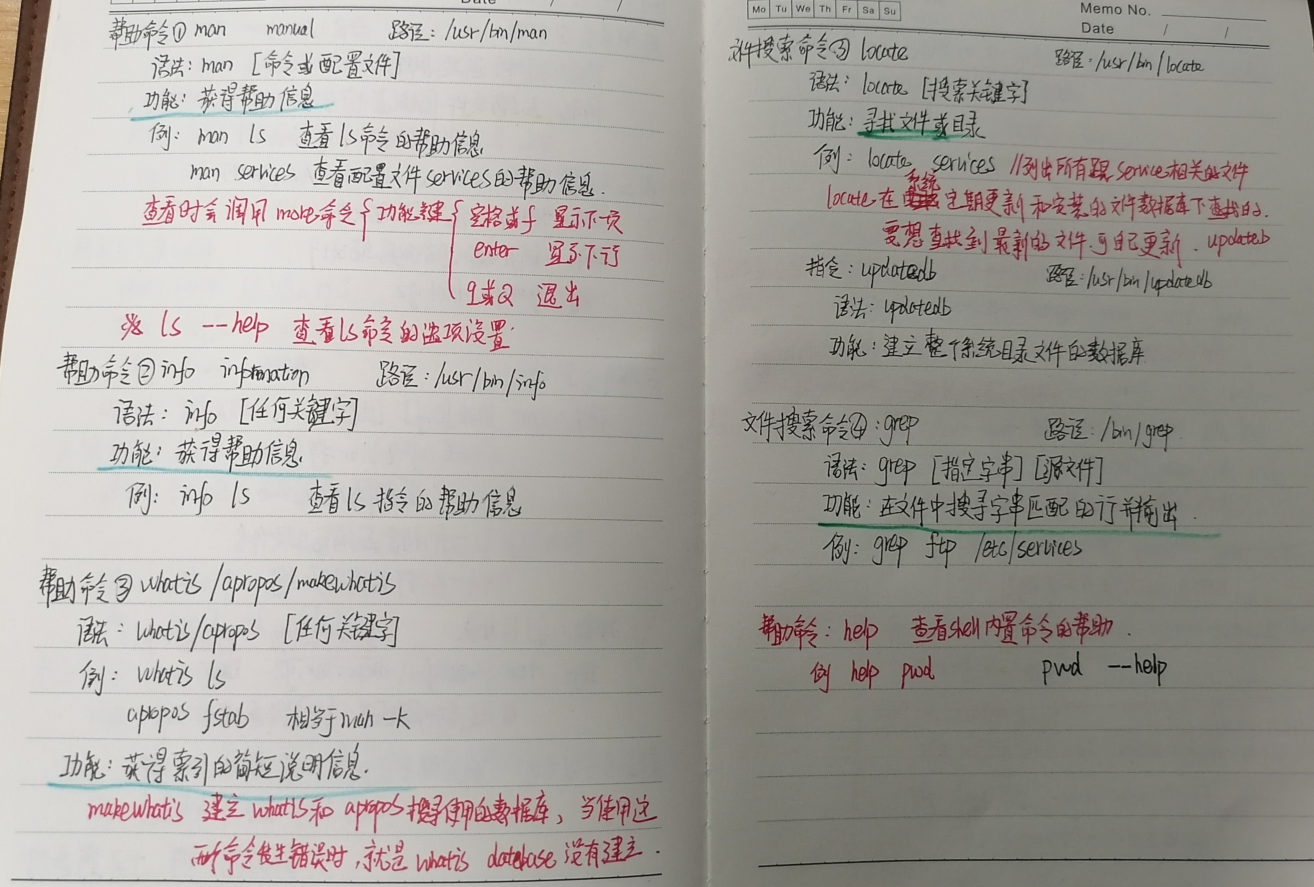 Date / /
帮助命令① man manual 路径: /usr/bin/man
语法: man [命令或配置文件]
功能: 获得帮助信息
例: man ls 查看ls命令的帮助信息
man services 查看配置文件services的帮助信息.
查看时会调用 more命令 { 功能键 { 空格或f 显示下一页
enter 显示下一行
q或Q 退出
※ ls --help 查看ls命令的选项设置.
帮助命令② info information 路径: /usr/bin/info
语法: info [任何关键字]
功能: 获得帮助信息.
例: info ls 查看ls指令的帮助信息
帮助命令③ whatis /apropos/makewhatis
语法: whatis/apropos [任何关键字]
例: whatis ls
apropos fstab 相当于man -k
功能: 获得索引的简短说明信息.
makewhatis 建立whatis和apropos搜寻使用的数据库, 当使用这
两个命令发生错误时, 就是whatis datebase没有建立.
Mo Tu We Th Fr Sa Su
Memo No.
Date / /
文件搜索命令③ locate 路径: /usr/bin/locate
语法: locate [搜索关键字]
功能: 寻找文件或目录
例: locate services //列出所有跟service相关的文件
locate在系统定期更新和安装的文件数据库下查找的.
要想查找到最新的文件.可自己更新. updateb
指令: updatedb 路径: /usr/bin/updatedb
语法: updatedb
功能: 建立整个系统目录文件的数据库
文件搜索命令④: grep 路径: /bin/grep
语法: grep [指定字串] [源文件]
功能: 在文件中搜寻字串匹配的行并输出.
例: grep ftp /etc/services
帮助命令: help 查看shell内置命令的帮助.
例 help pwd pwd --help